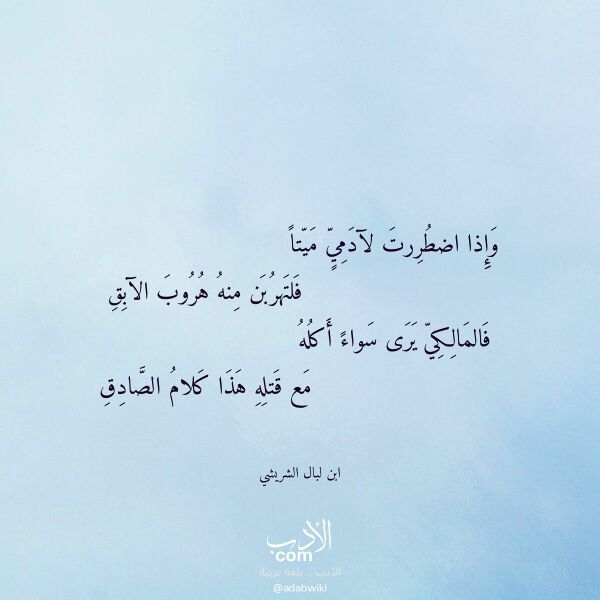 وَإِذا اضطُرِرتَ لآدَمِيٍّ مَيّتاً
فَلتَهرُبَن مِنهُ هُرُوبَ الآبِقِ
فَالمَالِكِيّ يَرَى سَواءً أَكلُهُ
مَع قَتلِهِ هَذَا كَلامُ الصَّادِقِ
ابن لبال الشريشي
الأدب
com
الأدب .. بلغة عربية
@adabwiki